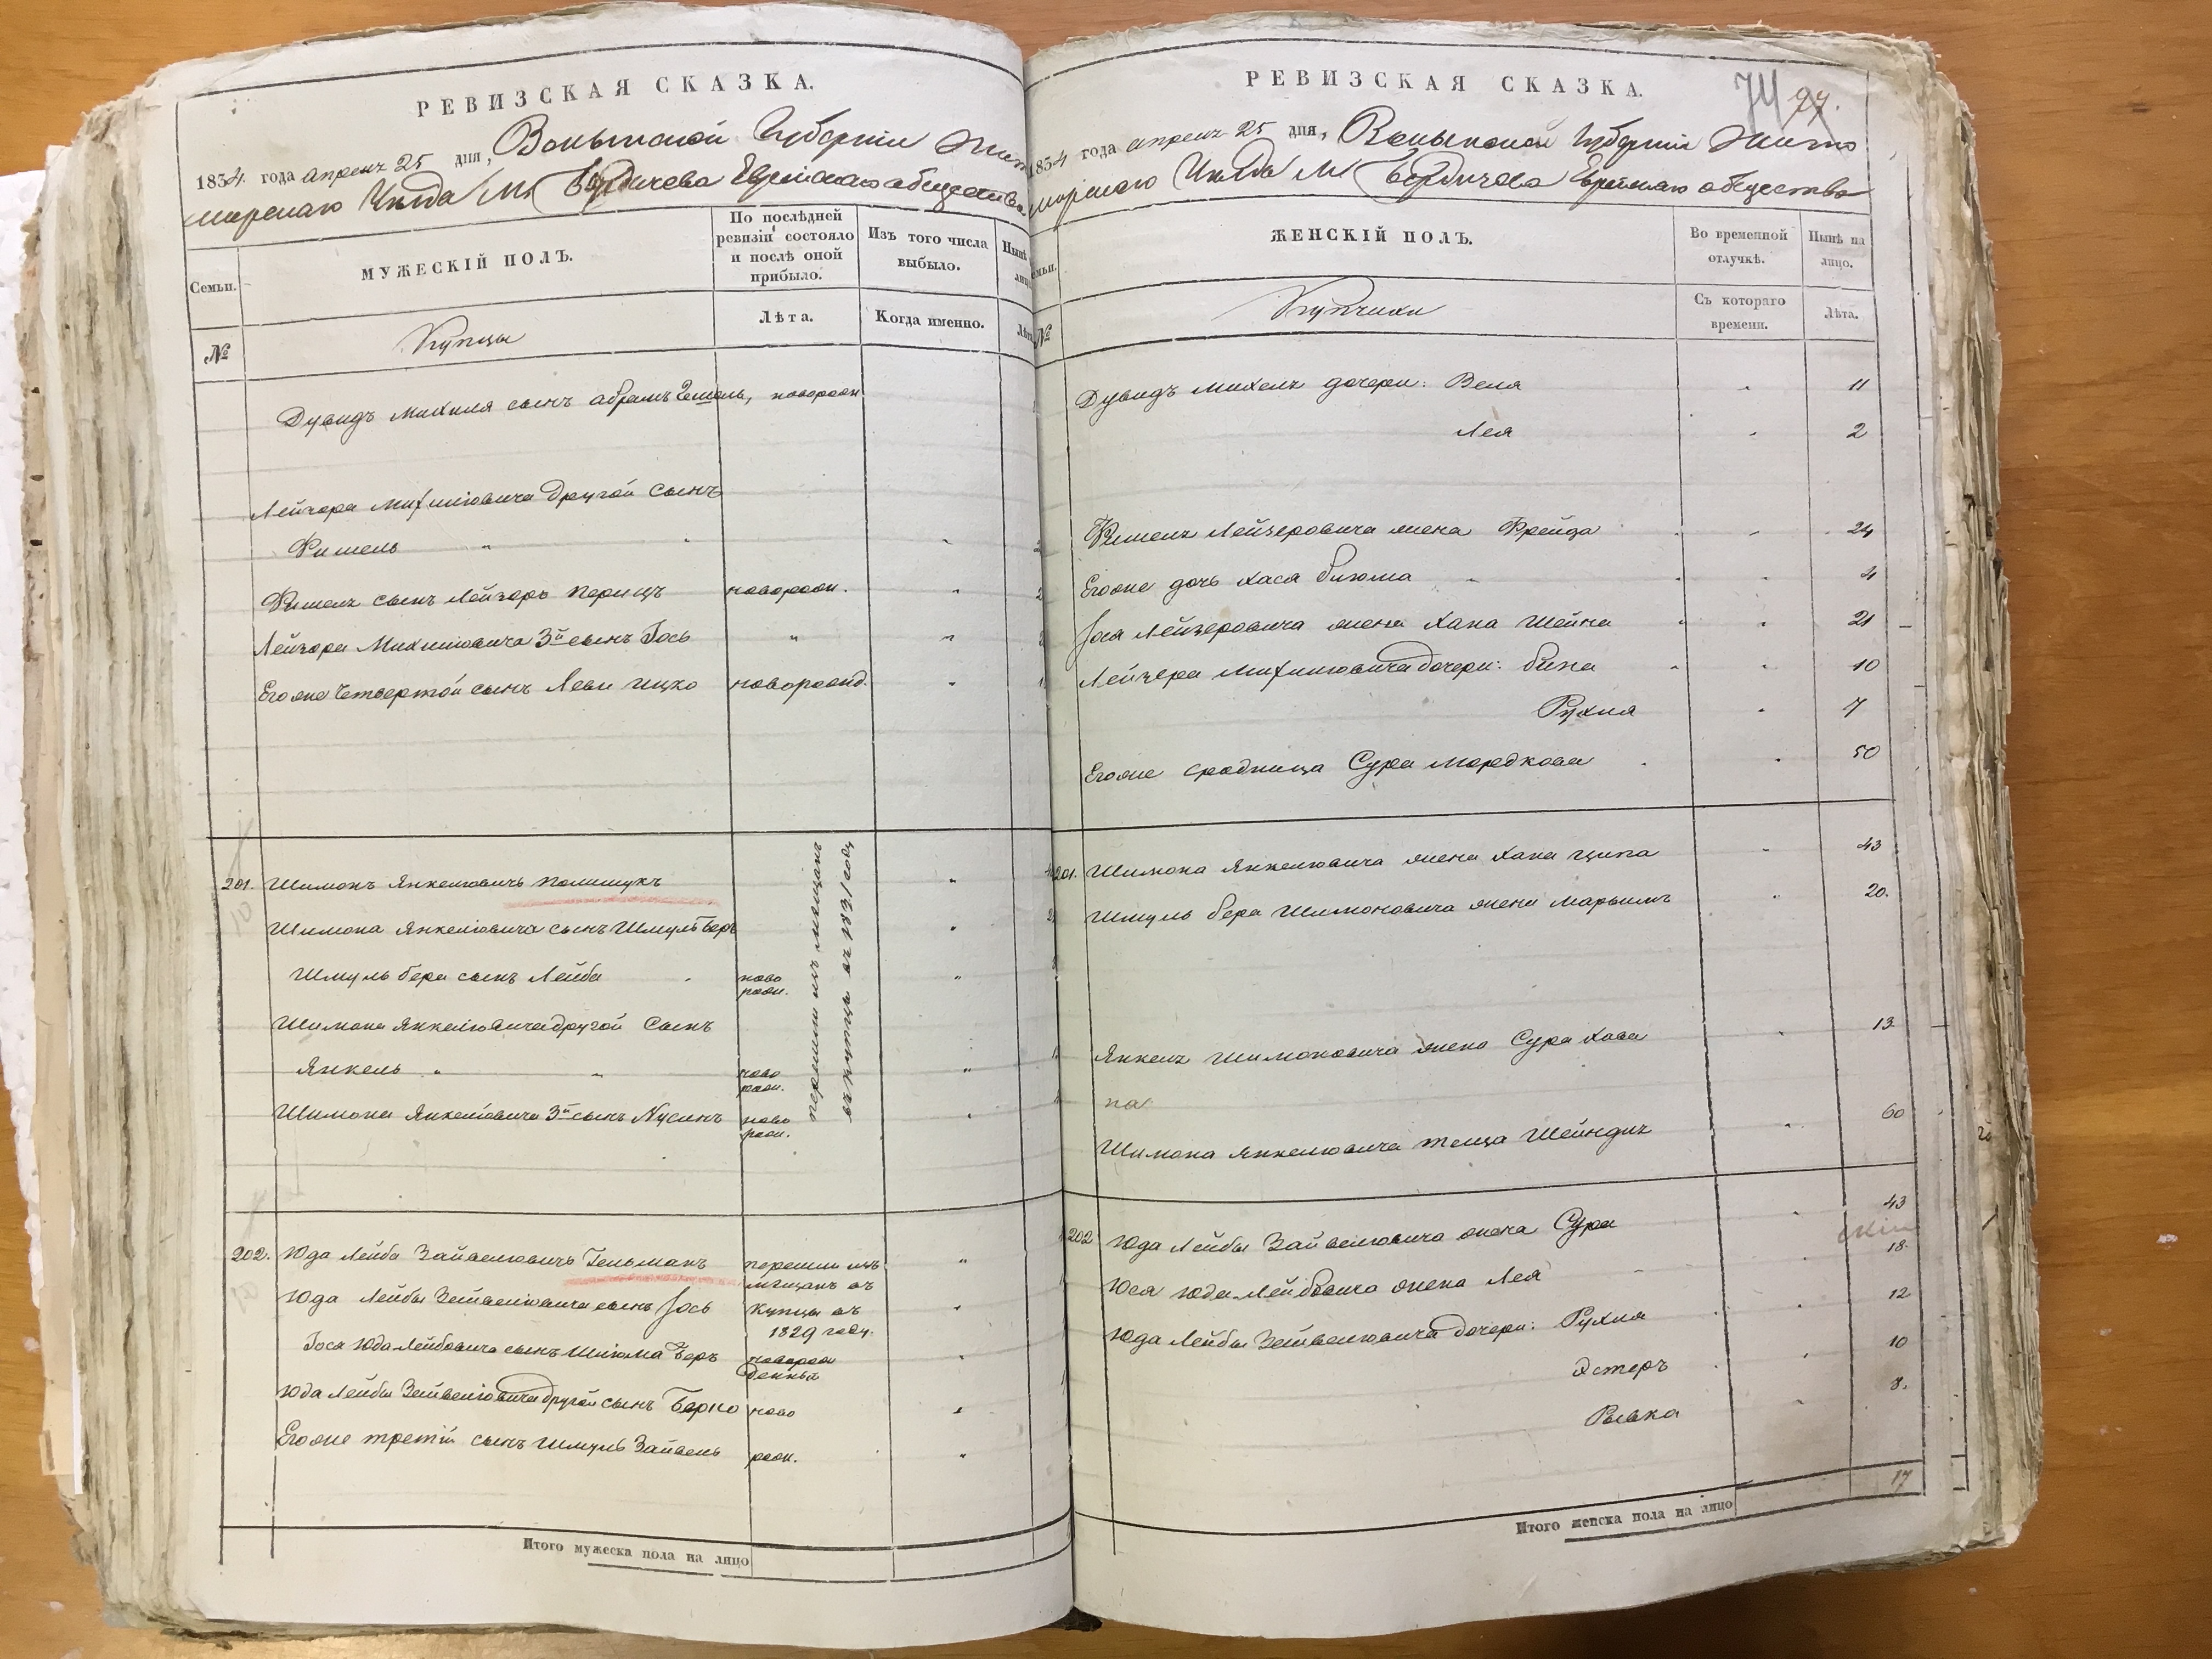 РЕВИЗСКАЯ СКАЗКА.
1834 года апреля 25 дня, Волынской Губернии Жит
мирскаго Уезда М. Бердичева Еврейскаго общества
Семьи.
МУЖЕСКІЙ ПОЛЪ.
По послѣдней
ревизіи состояло
и послѣ оной
прибыло.
Изъ того числа
выбыло.
№
Купцы
Лѣта.
Когда именно.
Дувидъ Михеля сынъ Абрамъ новорож
Лейзора Михелювича другой сынъ
Фишель " " "
Фишеля сынъ Лейзоръ Перецъ новорож. "
Лейзора Михелювича 3й сынъ Іось " "
Егоже четвертой сынъ Леви Ицко новорожд. "
перешли изъ мещанъ
въ купцы въ 1831 году
201. Шимонъ Янкелювичъ Полищукъ "
10
Шимона Янкелювича сынъ Шмуль Беръ "
Шмуль Бера сынъ Лейба " ново рож. "
Шимона Янкелювича другой сынъ
Янкель " " ново рож. "
Шимона Янкелювича 3й сынъ Нусинъ ново рож. "
202. Юда Лейба Зайвелювичъ Гельманъ перешли изъ "
10
мѣщанъ въ
Юда Лейбы Зейвелювича сынъ Іось купцы въ "
1829 году.
Іося Юда Лейбовича сынъ Шліома Беръ новорож денныя "
Юда Лейбы Зейвелювича другой сынъ Берко ново "
Егоже третій сынъ Шмуль Зайвель рож. "
Итого мужеска пола на лицо
РЕВИЗСКАЯ СКАЗКА.
74 97.
1834 года апреля 25 дня, Волынской Губерніи Жито
мирскаго Уезда М. Бердичева Еврейскаго общества
ЖЕНСКІЙ ПОЛЪ.
Во временной
отлучкѣ.
Нынѣ на
лицо.
№
Купчихи
Съ котораго
времени.
Лѣта.
Дувидъ Михеля дочери: Веля " 11
Лея " 2
Фишеля Лейзеровича жена Фрейда " " 24
Егоже дочь Хася Блюма " " " 4
Іося Лейзеровича жена Хана Шейна " " 21
Лейзера Михелювича дочери: Бина " " 10
Рухля " 7
Егоже сродница Сура Мордкова " " 50
201. Шимона Янкелювича жена Хана Ципа " 43
Шмуль Бера Шимоновича жена Марьямъ " 20.
Янкеля Шимоновича жена Сура Хава " 13
на
Шимона Янкелювича теща Шейндля " 60
202 Юда Лейбы Зайвелювича жена Сура " 43
Юся Юда-Лейбовича жена Лея " 18.
Юда Лейбы Зейвелювича дочери: Рухля " " 12
Эстеръ " " 10
Ривка " 8.
Итого женска пола на лицо 17